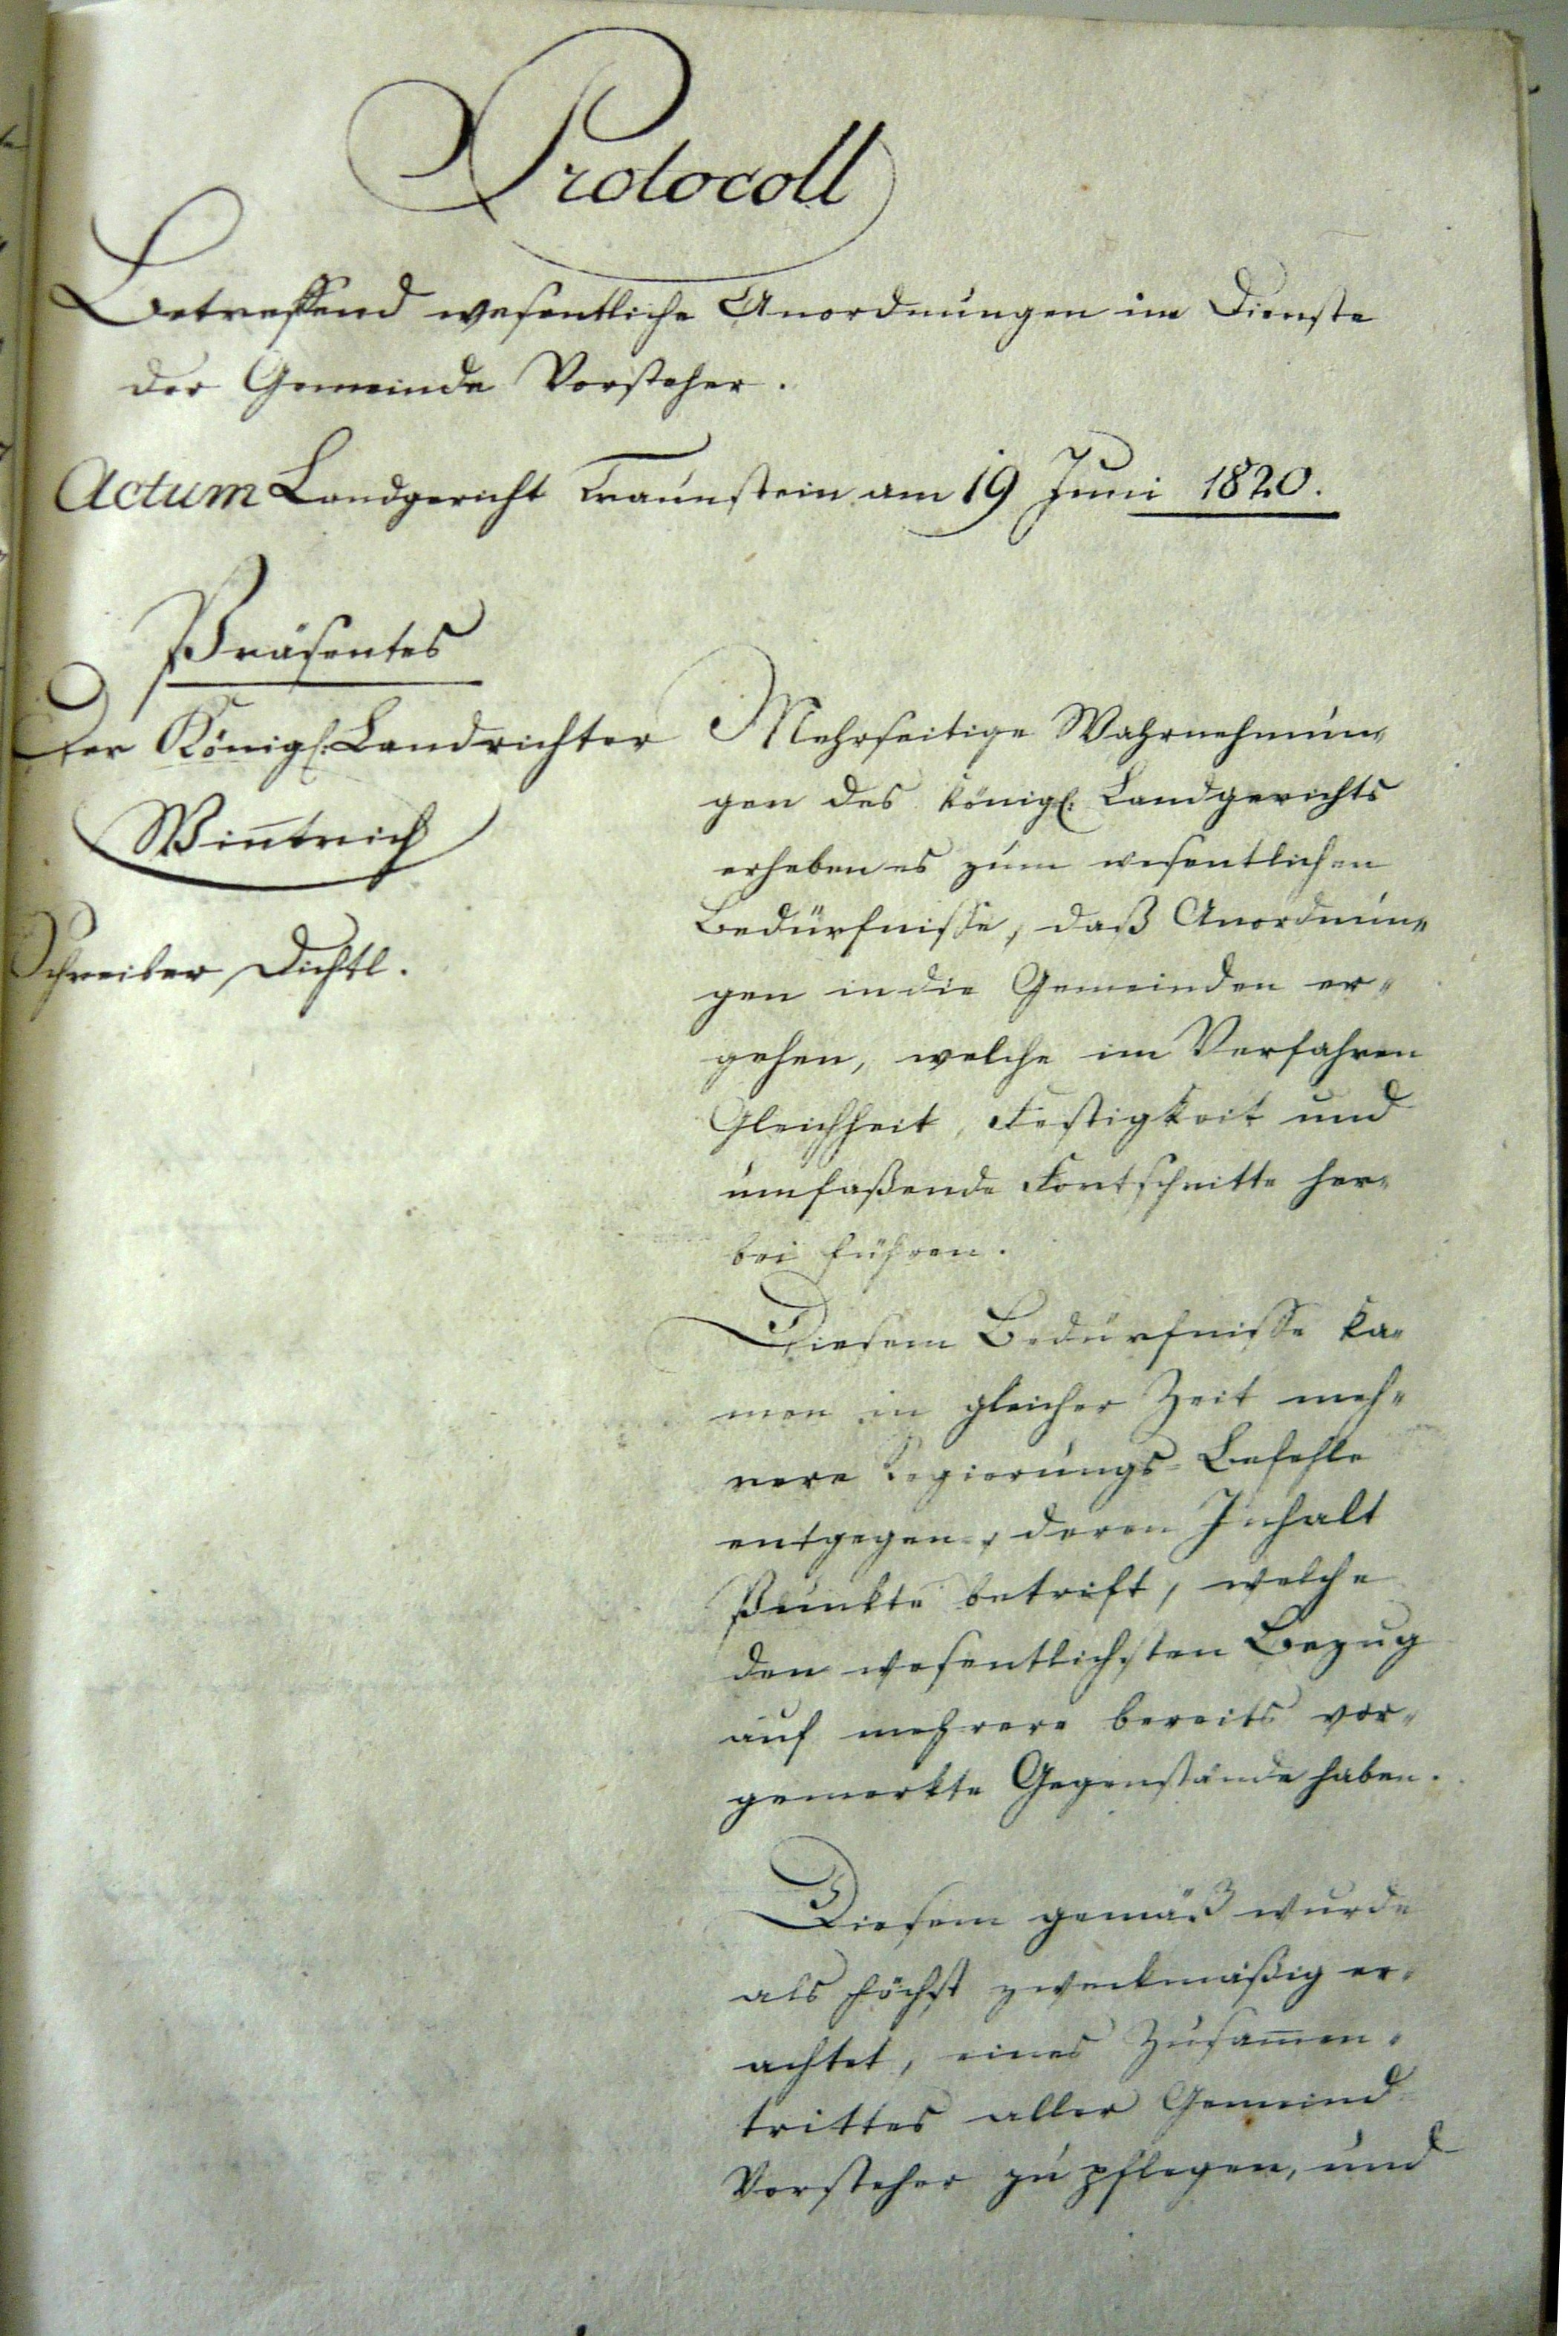 Protocoll
Betreffend wesentliche Anordnungen im Dienste
der Gemeinde Vorsteher.
Actum Landgericht Traunstein am 19 Juni 1820.
Präsentes
Der Königl. Landrichter
Wintrich
Schreiber Dichtl.
Mehrseitige Wahrnehmun„
gen des königl. Landgerichts
erheben es zum wesentlichen
Bedürfnisse, daß Anordnun„
gen in die Gemeinden er„
gehen, welche im Verfahren
Gleichheit, Festigkeit und
umfaßende Fortschritte her„
bei führen.
Diesem Bedürfnisse ka„
men in gleicher Zeit meh„
rere Regierungs=Befehle
entgegen, deren Inhalt
Punkte betrift, welche
den wesentlichsten Bezug
auf mehrere bereits vor„
gemerkte Gegenstände haben.
Diesem gemäß wurde
als höchst zweckmäßig er„
achtet, eines Zusam̅en„
trittes aller Gemeind
Vorsteher zu pflegen, und